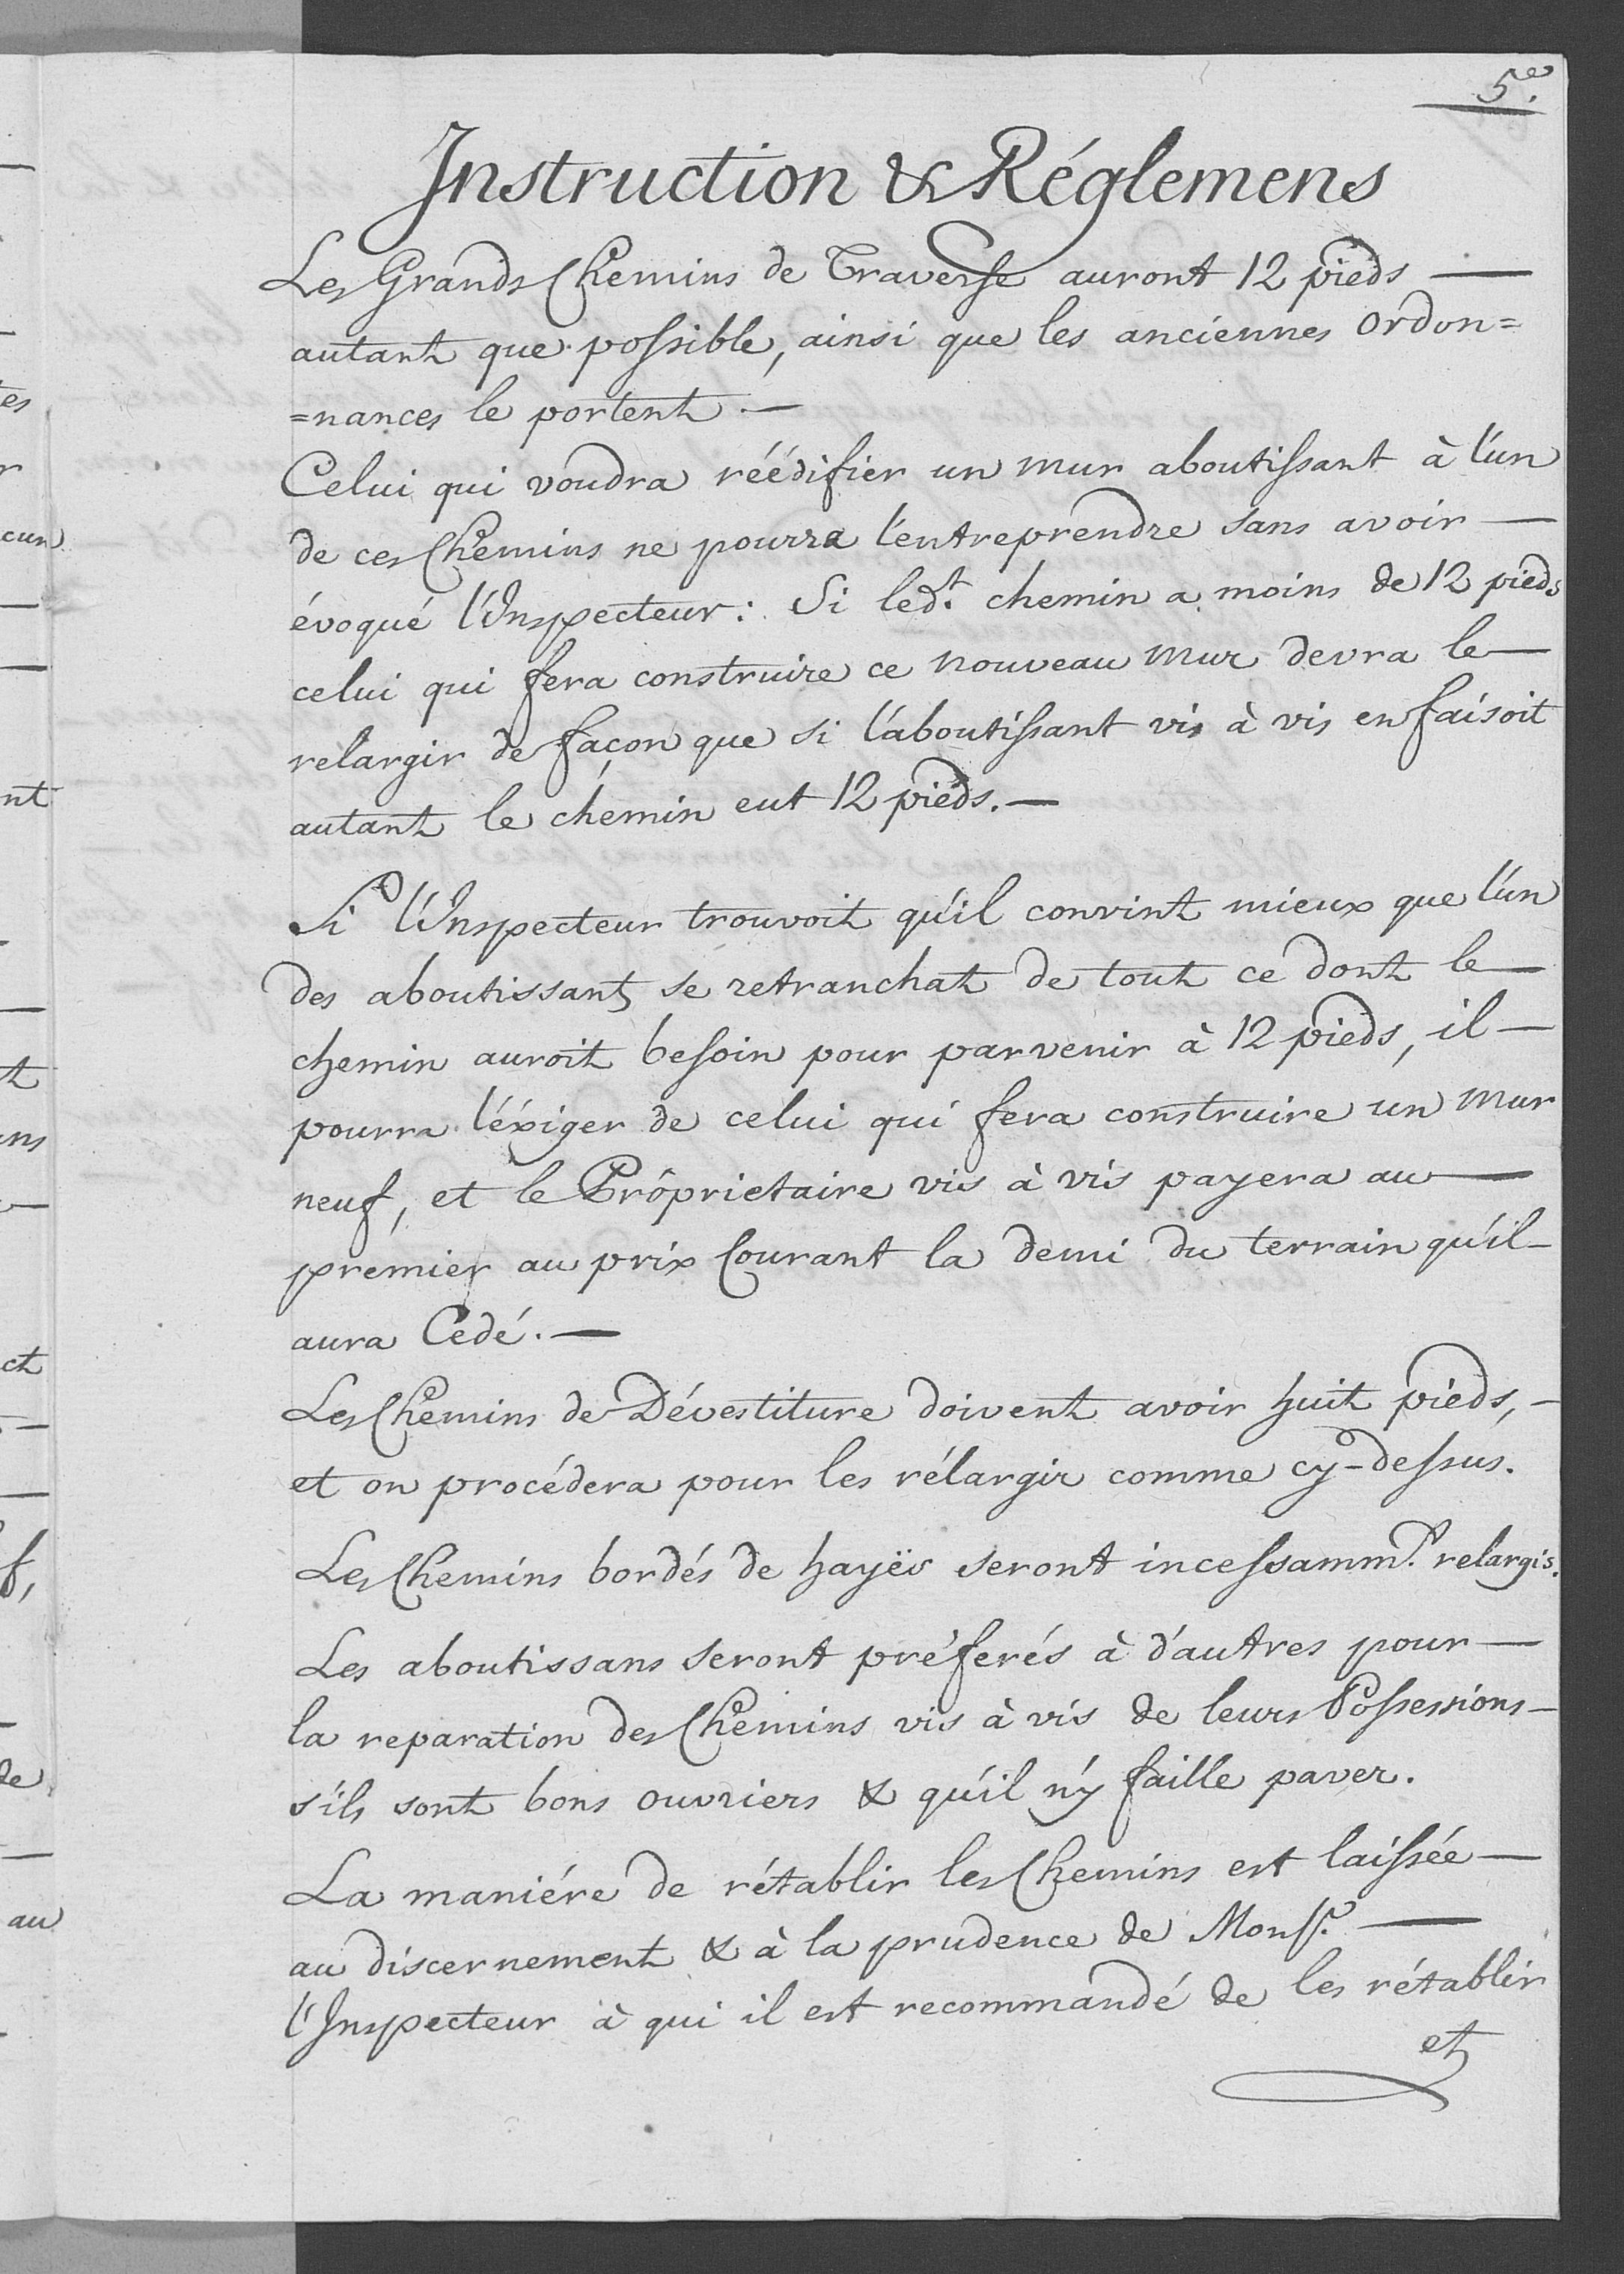 5.e
Instruction & Réglemens
Les Grands Chemins de Traverse auront 12 pieds —
autant que possible, ainsi que les anciennes ordon=
=nances le portent. —
Celui qui voudra réédifier un mur aboutissant à l'un
de ces Chemins ne pourra l'entreprendre sans avoir —
évoqué l'Inspecteur: Si led.t chemin a moins de 12 pieds
celui qui fera construire ce nouveau mur devra le —
relargir de façon que si l'aboutissant vis à vis en faisoit
autant le chemin eut 12 pieds. —
Si l'Inspecteur trouvoit qu'il convint mieux que l'un
des aboutissants se retranchat de tout ce dont le —
chemin auroit besoin pour parvenir à 12 pieds, il —
pourra l'éxiger de celui qui fera construire un mur
neuf, et le Propriétaire vis à vis payera au —
prémier au prix Courant la demi du terrain qu'il —
aura Cedé. —
Les Chemins de Dévestiture doivent avoir huit pieds, —
et on procédera pour les rélargir comme cy-dessus.
Les Chemins bordés de hayës seront incessamm.t relargis.
Les aboutissans seront préferés à d'autres pour —
la reparation des Chemins vis à vis de leurs Possessions —
s'ils sont bons ouvriers & qu'il n'y faille paver.
La maniére de rétablir les Chemins est laissée —
au discernement & à la prudence de Mons.r —
l'Inspecteur à qui il est recommandé de les rétablir
et
tes
r
cun
nt
t
ns
ct
f,
de
au